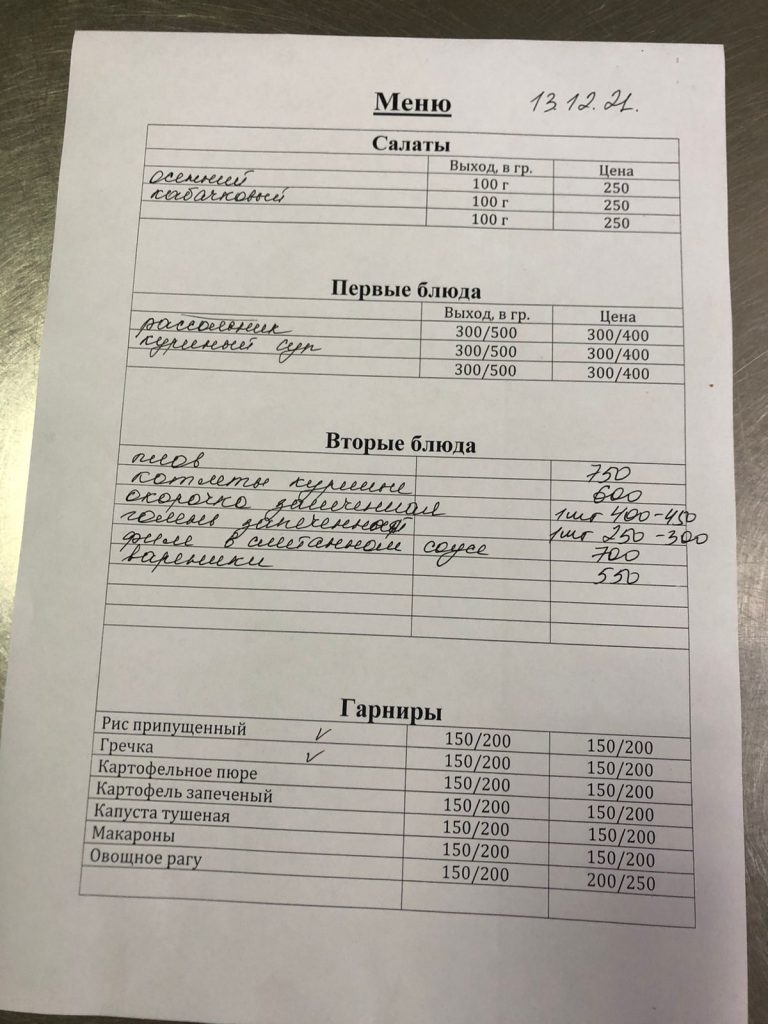 Меню 13.12.21.
Салаты
Выход, в гр. Цена
осенний 100 г 250
кабачковый 100 г 250
100 г 250
Первые блюда
Выход, в гр. Цена
рассольник 300/500 300/400
куриный суп 300/500 300/400
300/500 300/400
Вторые блюда
плов 750
котлеты куриные 600
окорочка запеченная 1шт 400-450
голень запеченная 1шт 250-300
филе в сметанном соусе 700
вареники 550
Гарниры
Рис припущенный ✓ 150/200 150/200
Гречка ✓ 150/200 150/200
Картофельное пюре 150/200 150/200
Картофель запеченый 150/200 150/200
Капуста тушеная 150/200 150/200
Макароны 150/200 150/200
Овощное рагу 150/200 200/250